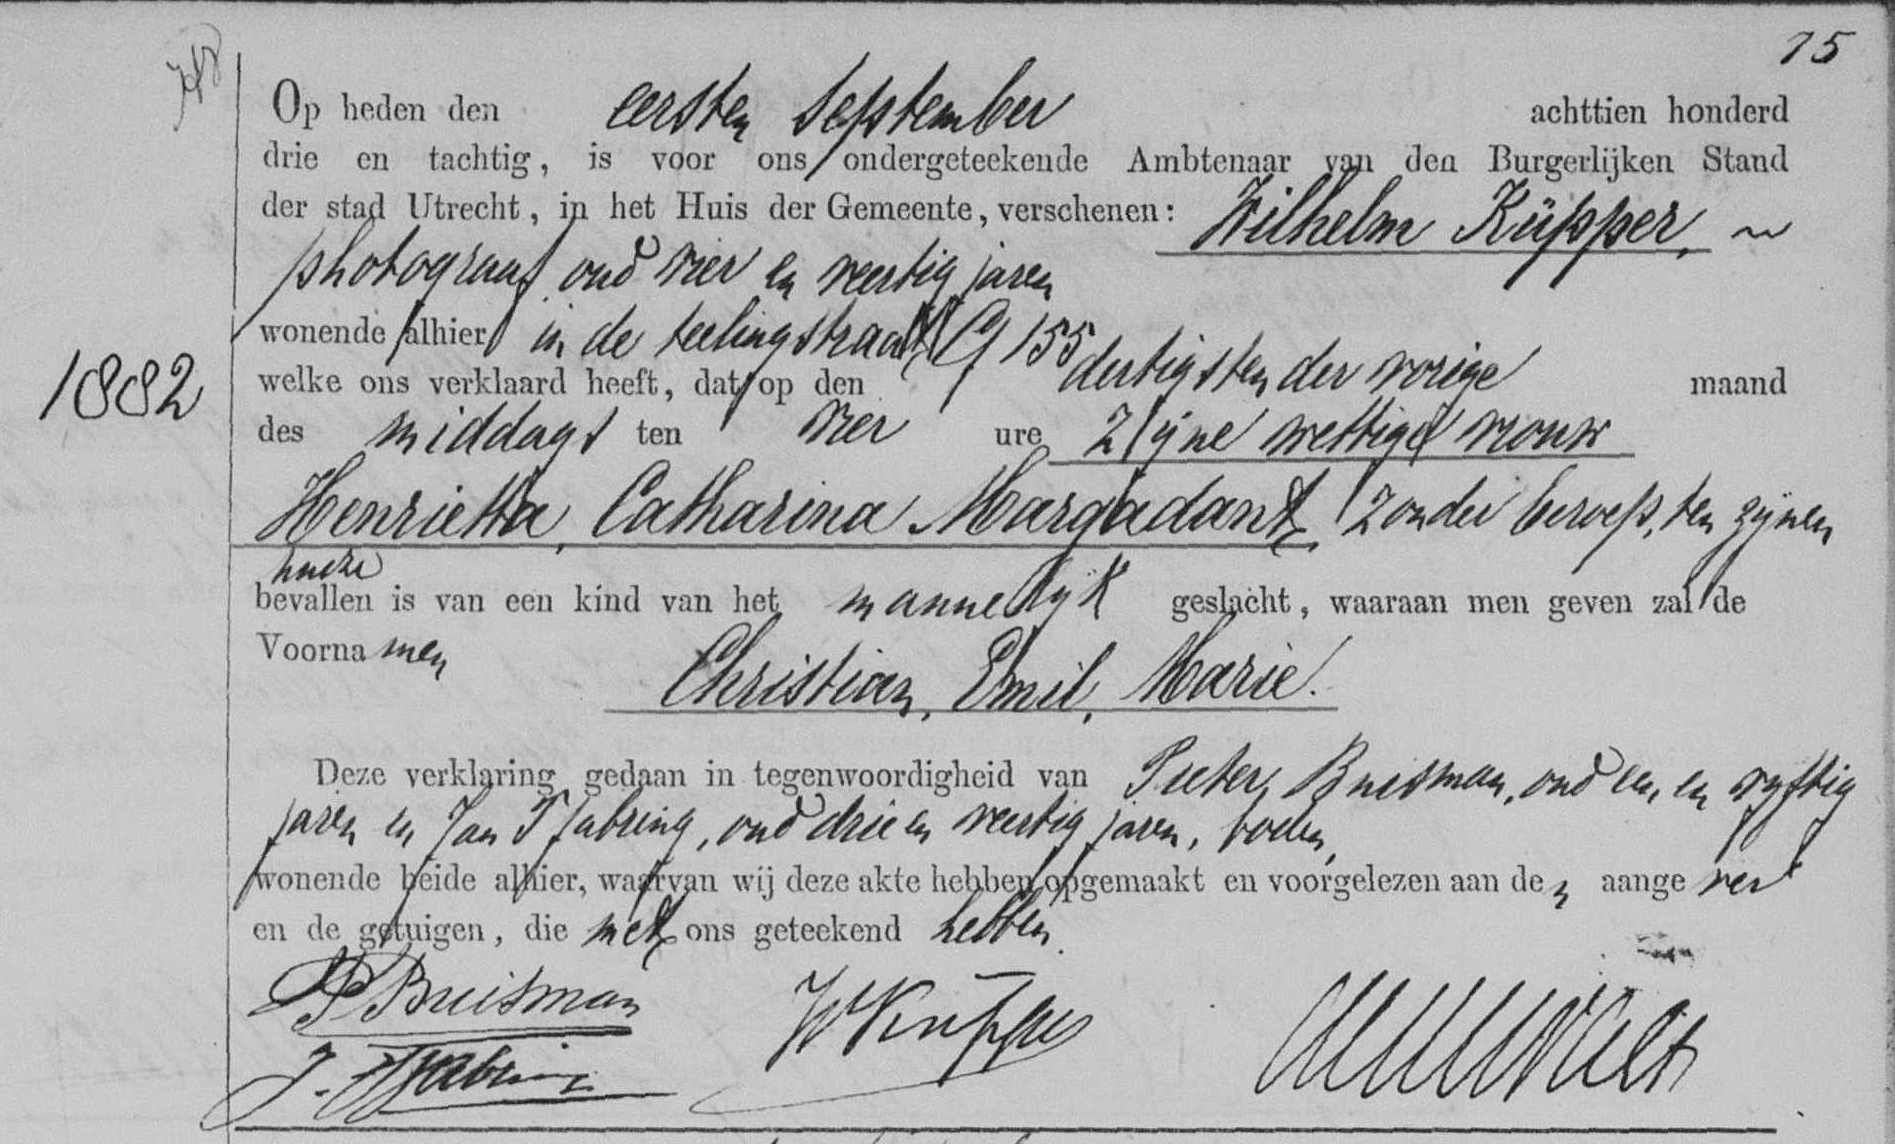 75
Op heden den eersten September achttien honderd
drie en tachtig, is voor ons ondergeteekende Ambtenaar van den Burgerlijken Stand
der stad Utrecht, in het Huis der Gemeente, verschenen: Wilhelm Küpper,
photograaf, oud vier en veertig jaren
wonende alhier in de teelingstraat G 155
welke ons verklaard heeft, dat op den dertigsten der vorige maand
1882
des middags ten vier ure zijne wettige vrouw
Henrietta, Catharina Margadant, zonder beroep, ten zijnen
huize
bevallen is van een kind van het mannelijk geslacht, waaraan men geven zal de
Voornamen
Christian, Emil, Marie.
Deze verklaring gedaan in tegenwoordigheid van Pieter Buisman, oud een en vijftig
jaren en Jan Tjabring, oud drie en veertig jaren, boden,
wonende beide alhier, waarvan wij deze akte hebben opgemaakt en voorgelezen aan den aangever
en de getuigen, die met ons geteekend hebben.
P Buisman
W Küpper
J. Tjabring